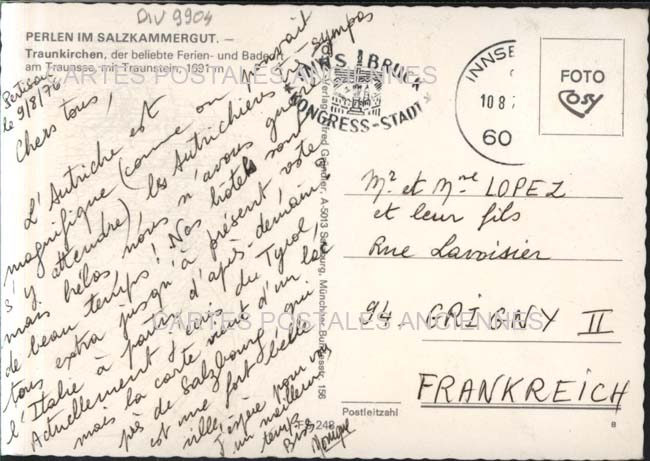 DIV 9904
PERLEN IM SALZKAMMERGUT. —
Traunkirchen, der beliebte Ferien- und Badeort
am Traunsee, mit Traunstein, 1691 m
Pertisau
le 9/8/76
Chers tous,
L'Autriche est
magnifique (comme on pouvait
s'y attendre) les Autrichiens très sympas
mais hélas nous n'avons guère
de beau temps! Nos hôtels sont
tous extra jusqu'à présent
l'Italie à partir d'après-demain.
Actuellement je suis du Tyrol,
mais la carte vient d'un lac
près de Salzbourg qui
est une fort belle
ville. J'espère pour vous
un meilleur
temps
Bises
Monique
CARTES POSTALES ANCIENNES
CARTES POSTALES ANCIENNES
INNSBRUCK
KONGRESS-STADT
INNSB
10 8 7
60
FOTO
Cosy
A-5013 Salzburg, München, Bundesstr. 156
Mr et Mme LOPEZ
et leur fils
Rue Lavoisier
94. GRIGNY II
FRANKREICH
Postleitzahl
248
8